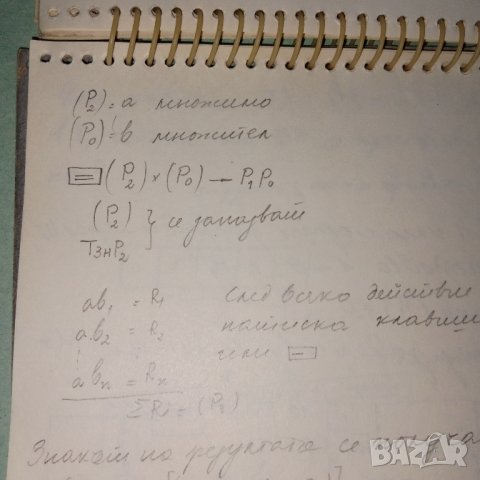 (P₂) = a множимо
(P₀) = в множител
⊟ (P₂) × (P₀) — P₁P₀
(P₂)
ТзнP₂ } се запазват
ab₁ = R₁ След всяко действие
ab₂ = R₂ натиска клавиш
или ⊟
abₙ = Rₙ
ΣRi = (P₁)
Знакът на резултата се
bazar.bg